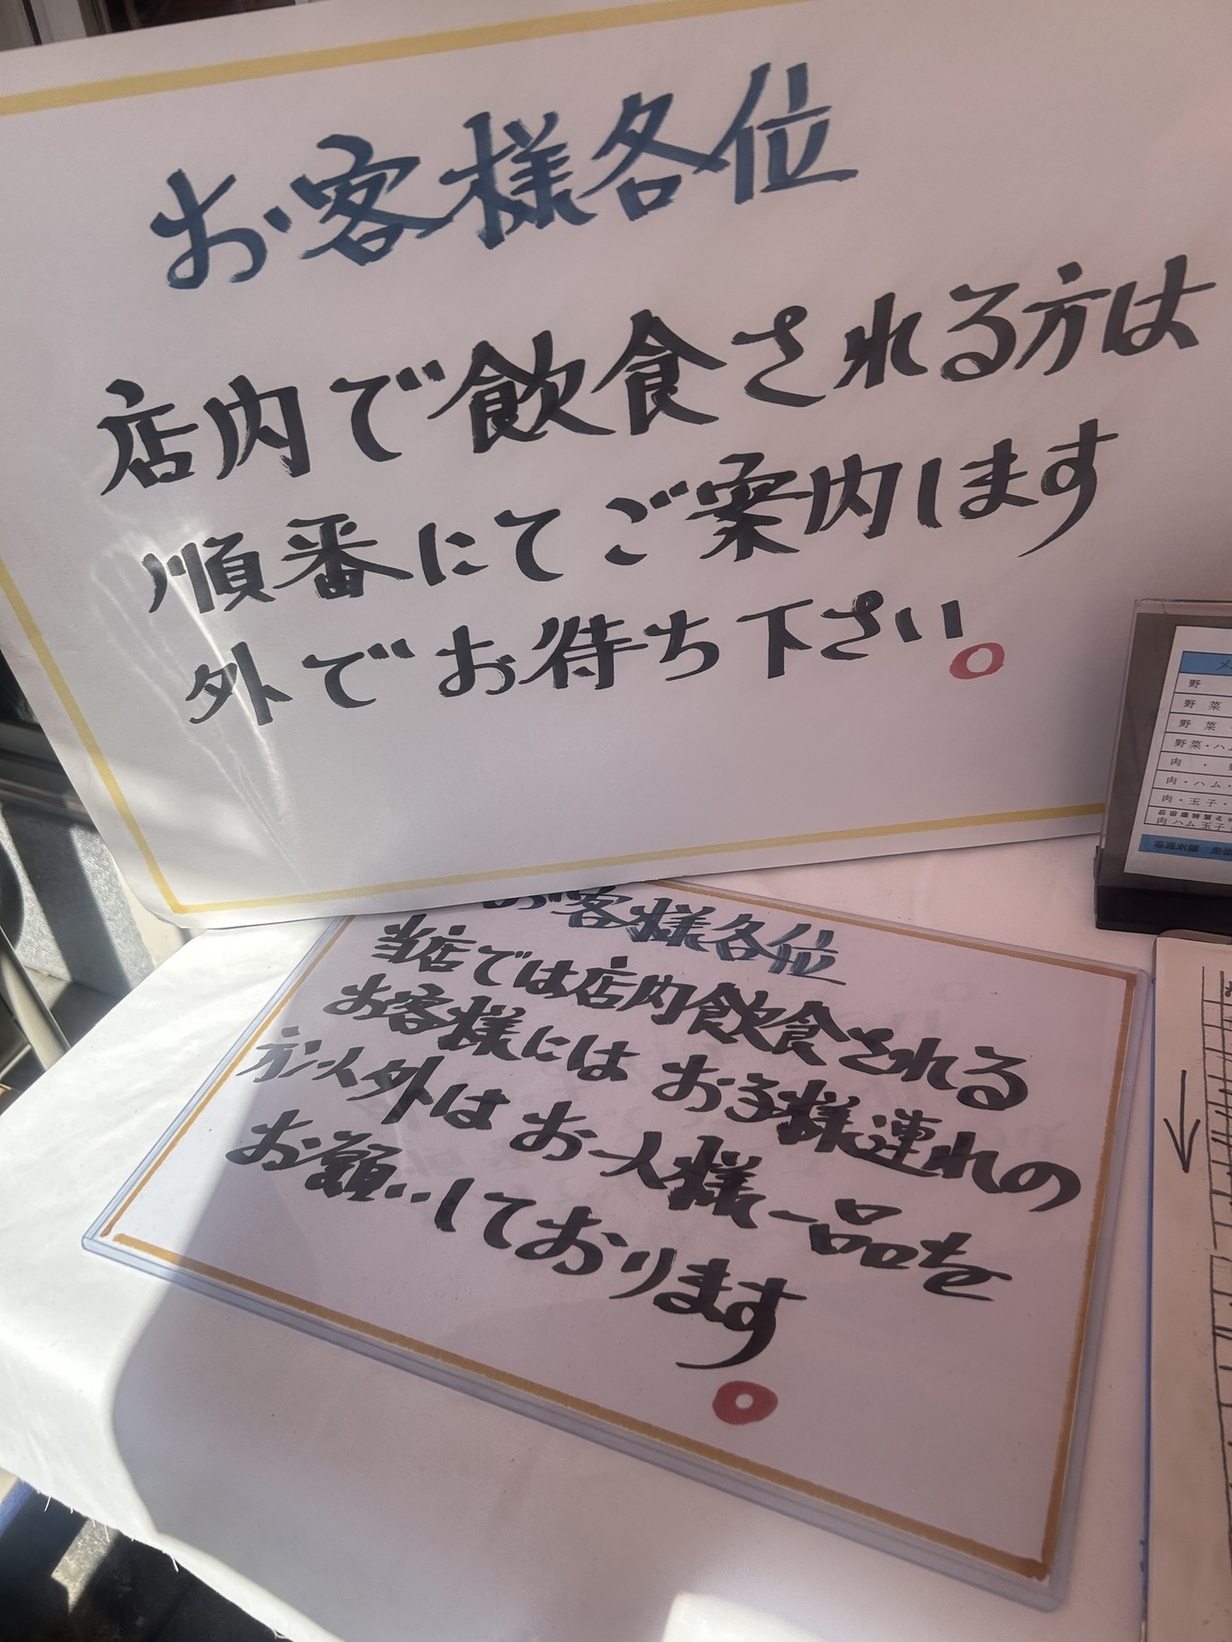 お客様各位
店内で飲食される方は
順番にてご案内します
外でお待ち下さい。
お客様各位
当店では店内飲食される
お客様には お子様連れの
方以外は お一人様一品を
お願いしております
。
野
野 菜
野 菜
野菜・ハム
肉 ・
肉・ハム・
肉・玉子・
肉ハム玉子